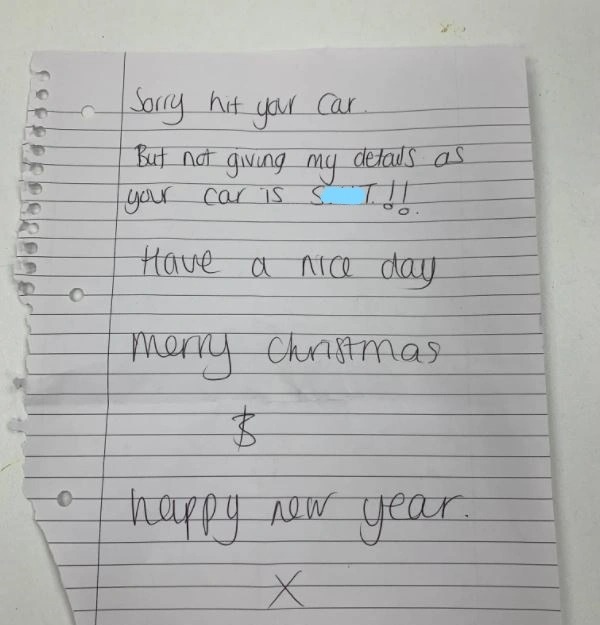 Sorry hit your car.
But not giving my details as
your car is S T.!!
Have a nice day
merry christmas
$
happy new year.
X